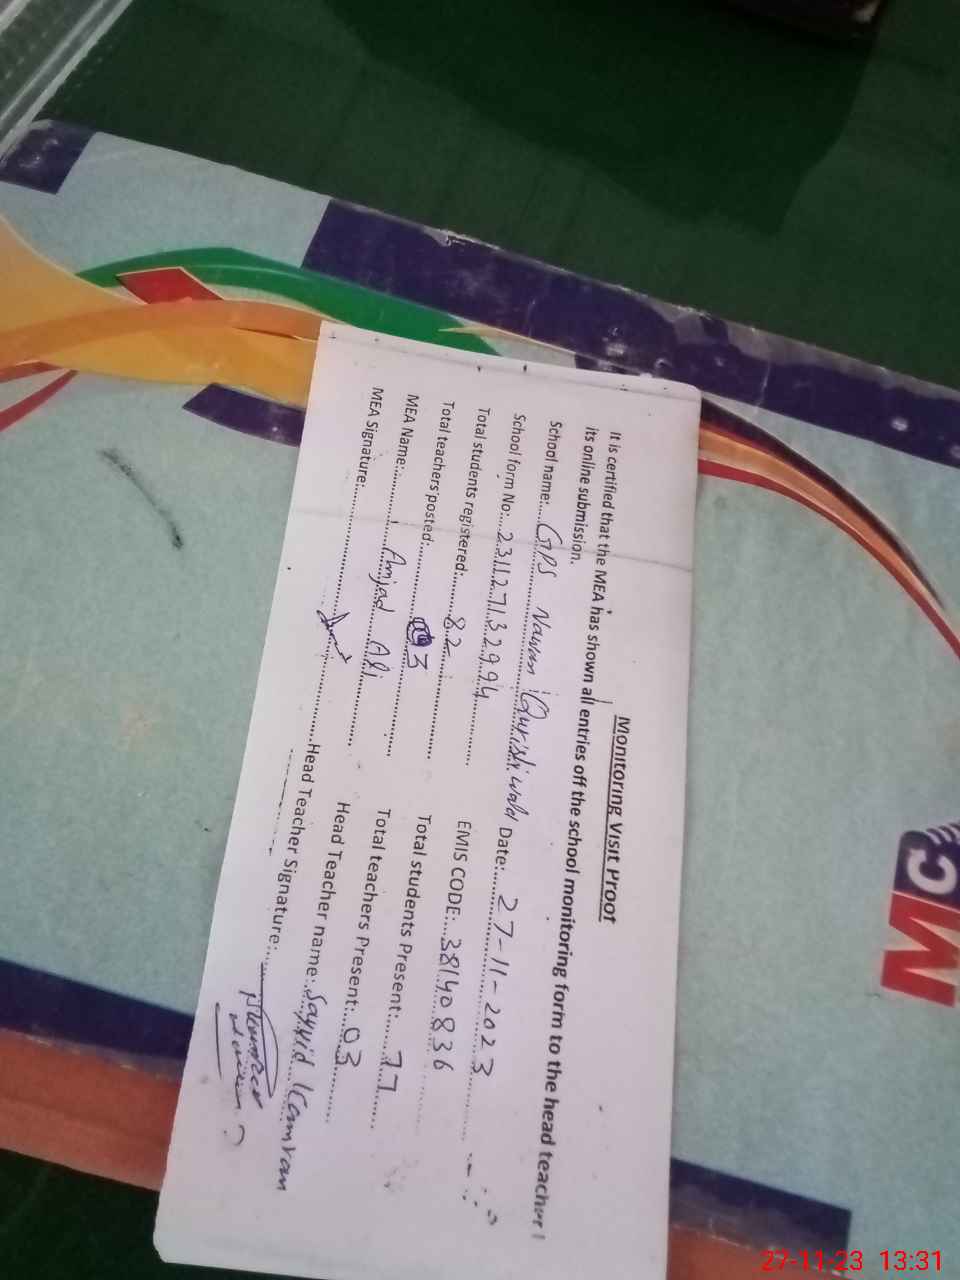 Monitoring Visit Proof
It is certified that the MEA has shown all entries off the school monitoring form to the head teacher
its online submission.
School name: GPS Nawan Qurishiwala Date: 27-11-2023
School form No: 231127132994 EMIS CODE: 38140836
Total students registered: 82 Total students Present: 77
Total teachers posted: 3 Total teachers Present: 03
MEA Name: Amjad Ali Head Teacher name: Sayyid Kamran
MEA Signature: Head Teacher Signature:
MC
27-11-23 13:31